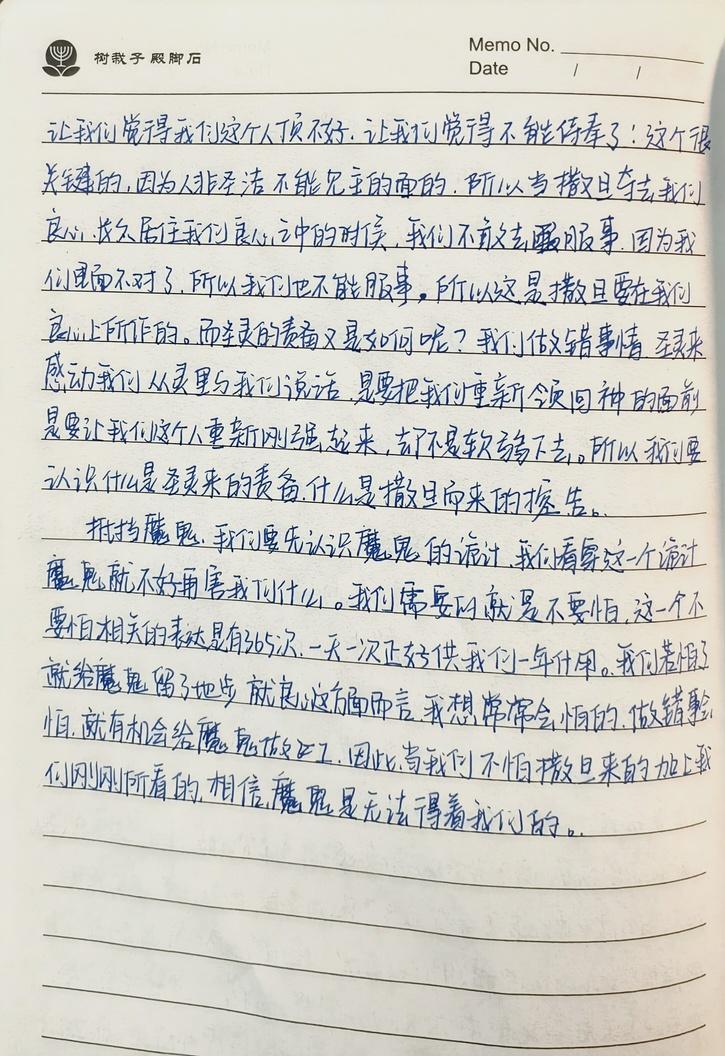 树栽子 殿脚石
Memo No.
Date / /
让我们觉得我们这个人顶不好，让我们觉得不能侍奉了！这个很
关键的，因为人非圣洁不能见主的面的，所以当撒旦夺去我们
良心，长久居住我们良心之中的时候，我们不敢去服事，因为我
们里面不对了，所以我们也不能服事。所以这是撒旦要在我们
良心上所作的。而圣灵的责备又是如何呢？我们做错事情，圣灵来
感动我们从灵里与我们说话，是要把我们重新领回神的面前
是要让我们这个人重新刚强起来，而不是软弱下去。所以我们要
认识什么是圣灵来的责备，什么是撒旦而来的控告。
抵挡魔鬼，我们要先认识魔鬼的诡计，我们看穿这一个诡计
魔鬼就不好再害我们什么。我们需要的就是不要怕，这一个不
要怕相关的表达是有365次，一天一次正好供我们一年什用。我们若怕了
就给魔鬼留了地步，就良心这方面而言，我想常常会怕的，做错事会
怕，就有机会给魔鬼做工，因此，当我们不怕撒旦来的，加上我
们刚刚所看的，相信，魔鬼是无法得着我们的。